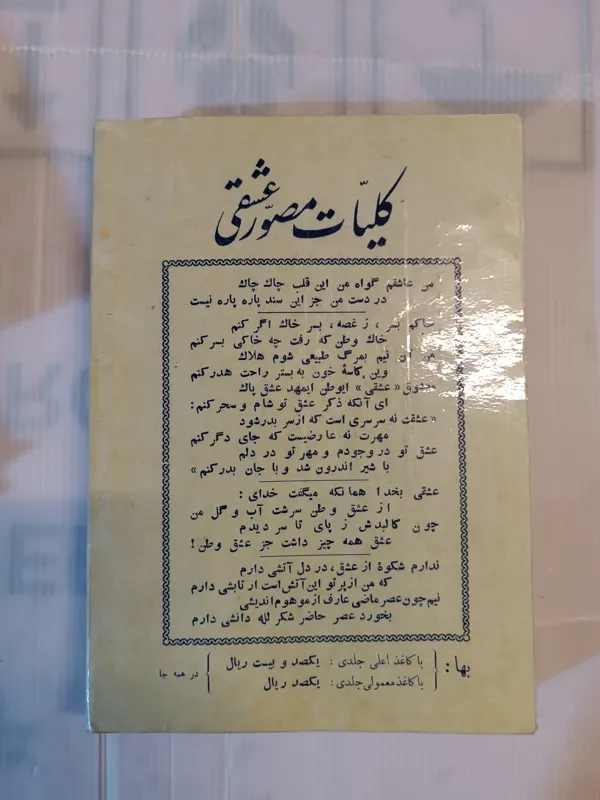 کلیّات مصوّر عشقی
من عاشقم گواه من این قلب چاك چاك
در دست من جز این سند پاره پاره نیست
خاکم بسر ، ز غصه ، بسر خاك اگر کنم
خاك وطن که رفت چه خاکی بسر کنم
من آن نیم بمرگ طبیعی شوم هلاك
وین کاسهٔ خون به بستر راحت هدر کنم
معشوق « عشقی » ایوطن ایمهد عشق پاك
ای آنکه ذکر عشق تو شام و سحر کنم :
« عشقت نه سرسری است که از سر بدر شود
مهرت نه عارضیست که جای دگر کنم
عشق تو در وجودم و مهر تو در دلم
با شیر اندرون شد و با جان بدر کنم »
عشقی بخدا همانکه میگفت خدای :
از عشق وطن سرشت آب و گل من
چون کالبدش ز پای تا سر دیدم
عشق همه چیز داشت جز عشق وطن !
ندارم شکوهٔ از عشق ، در دل آتشی دارم
که من از پرتو این آتش است ار تابشی دارم
نیم چون عصر ماضی عارف از موهوم اندیشی
بخورد عصر حاضر شکر لله دانشی دارم
بها : با کاغذ اعلی جلدی : یکصد و بیست ریال
با کاغذ معمولی جلدی : یکصد ریال
در همه جا